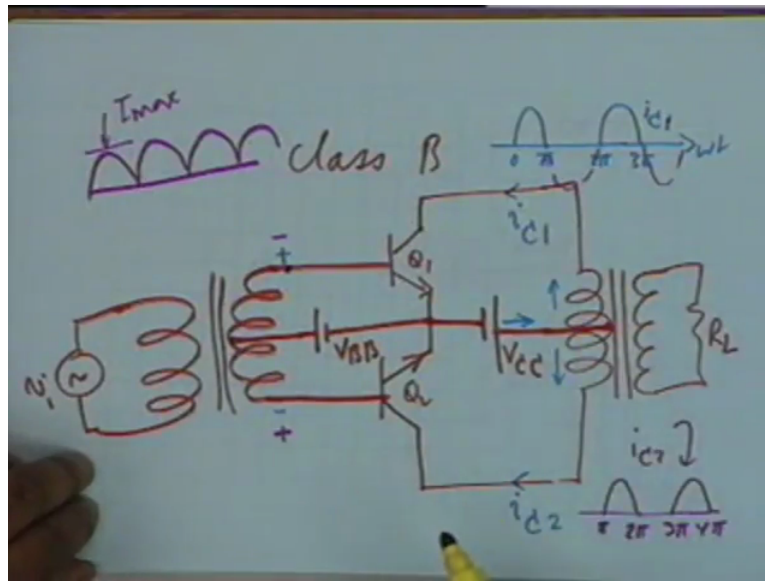 Imax
Class B
ic1
0 π 2π 3π ωt
iC1
- +
Q1
VBB
VCC
RL
vi
Q2
- +
ic2
iC2
π 2π 3π 4π